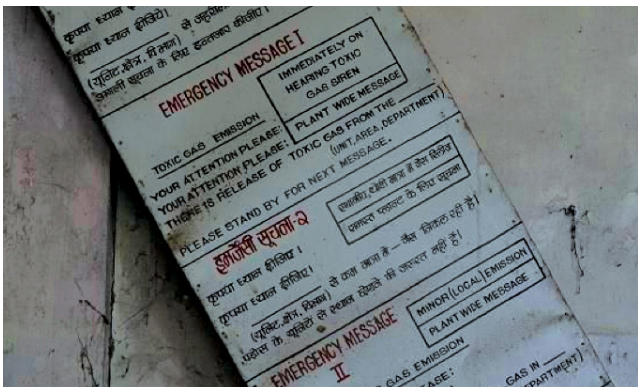 कृपया ध्यान दीजिये।
कृपया ध्यान दीजिये।
(यूनिट, क्षेत्र, विभाग) से
के लिए इन्तजार कीजिए।
EMERGENCY MESSAGE I
IMMEDIATELY ON
HEARING TOXIC
GAS SIREN
TOXIC GAS EMISSION
PLANT WIDE MESSAGE
YOUR ATTENTION PLEASE:
YOUR ATTENTION PLEASE:
THERE IS RELEASE OF TOXIC GAS FROM THE
(UNIT, AREA, DEPARTMENT)
PLEASE STAND BY FOR NEXT MESSAGE.
इमर्जेंसी सूचना-२
स्थानीय, थोड़ी मात्रा में गैस
समस्त प्लान्ट के लिए सूचना
कृपया ध्यान दीजिए।
कृपया ध्यान दीजिए।
(यूनिट, क्षेत्र, विभाग) से कम मात्रा में गैस निकल रही है।
पड़ोस के यूनिटों से स्थान छोड़ने की जरूरत नहीं है।
EMERGENCY MESSAGE
II
MINOR (LOCAL) EMISSION
PLANT WIDE MESSAGE
GAS EMISSION
GAS IN